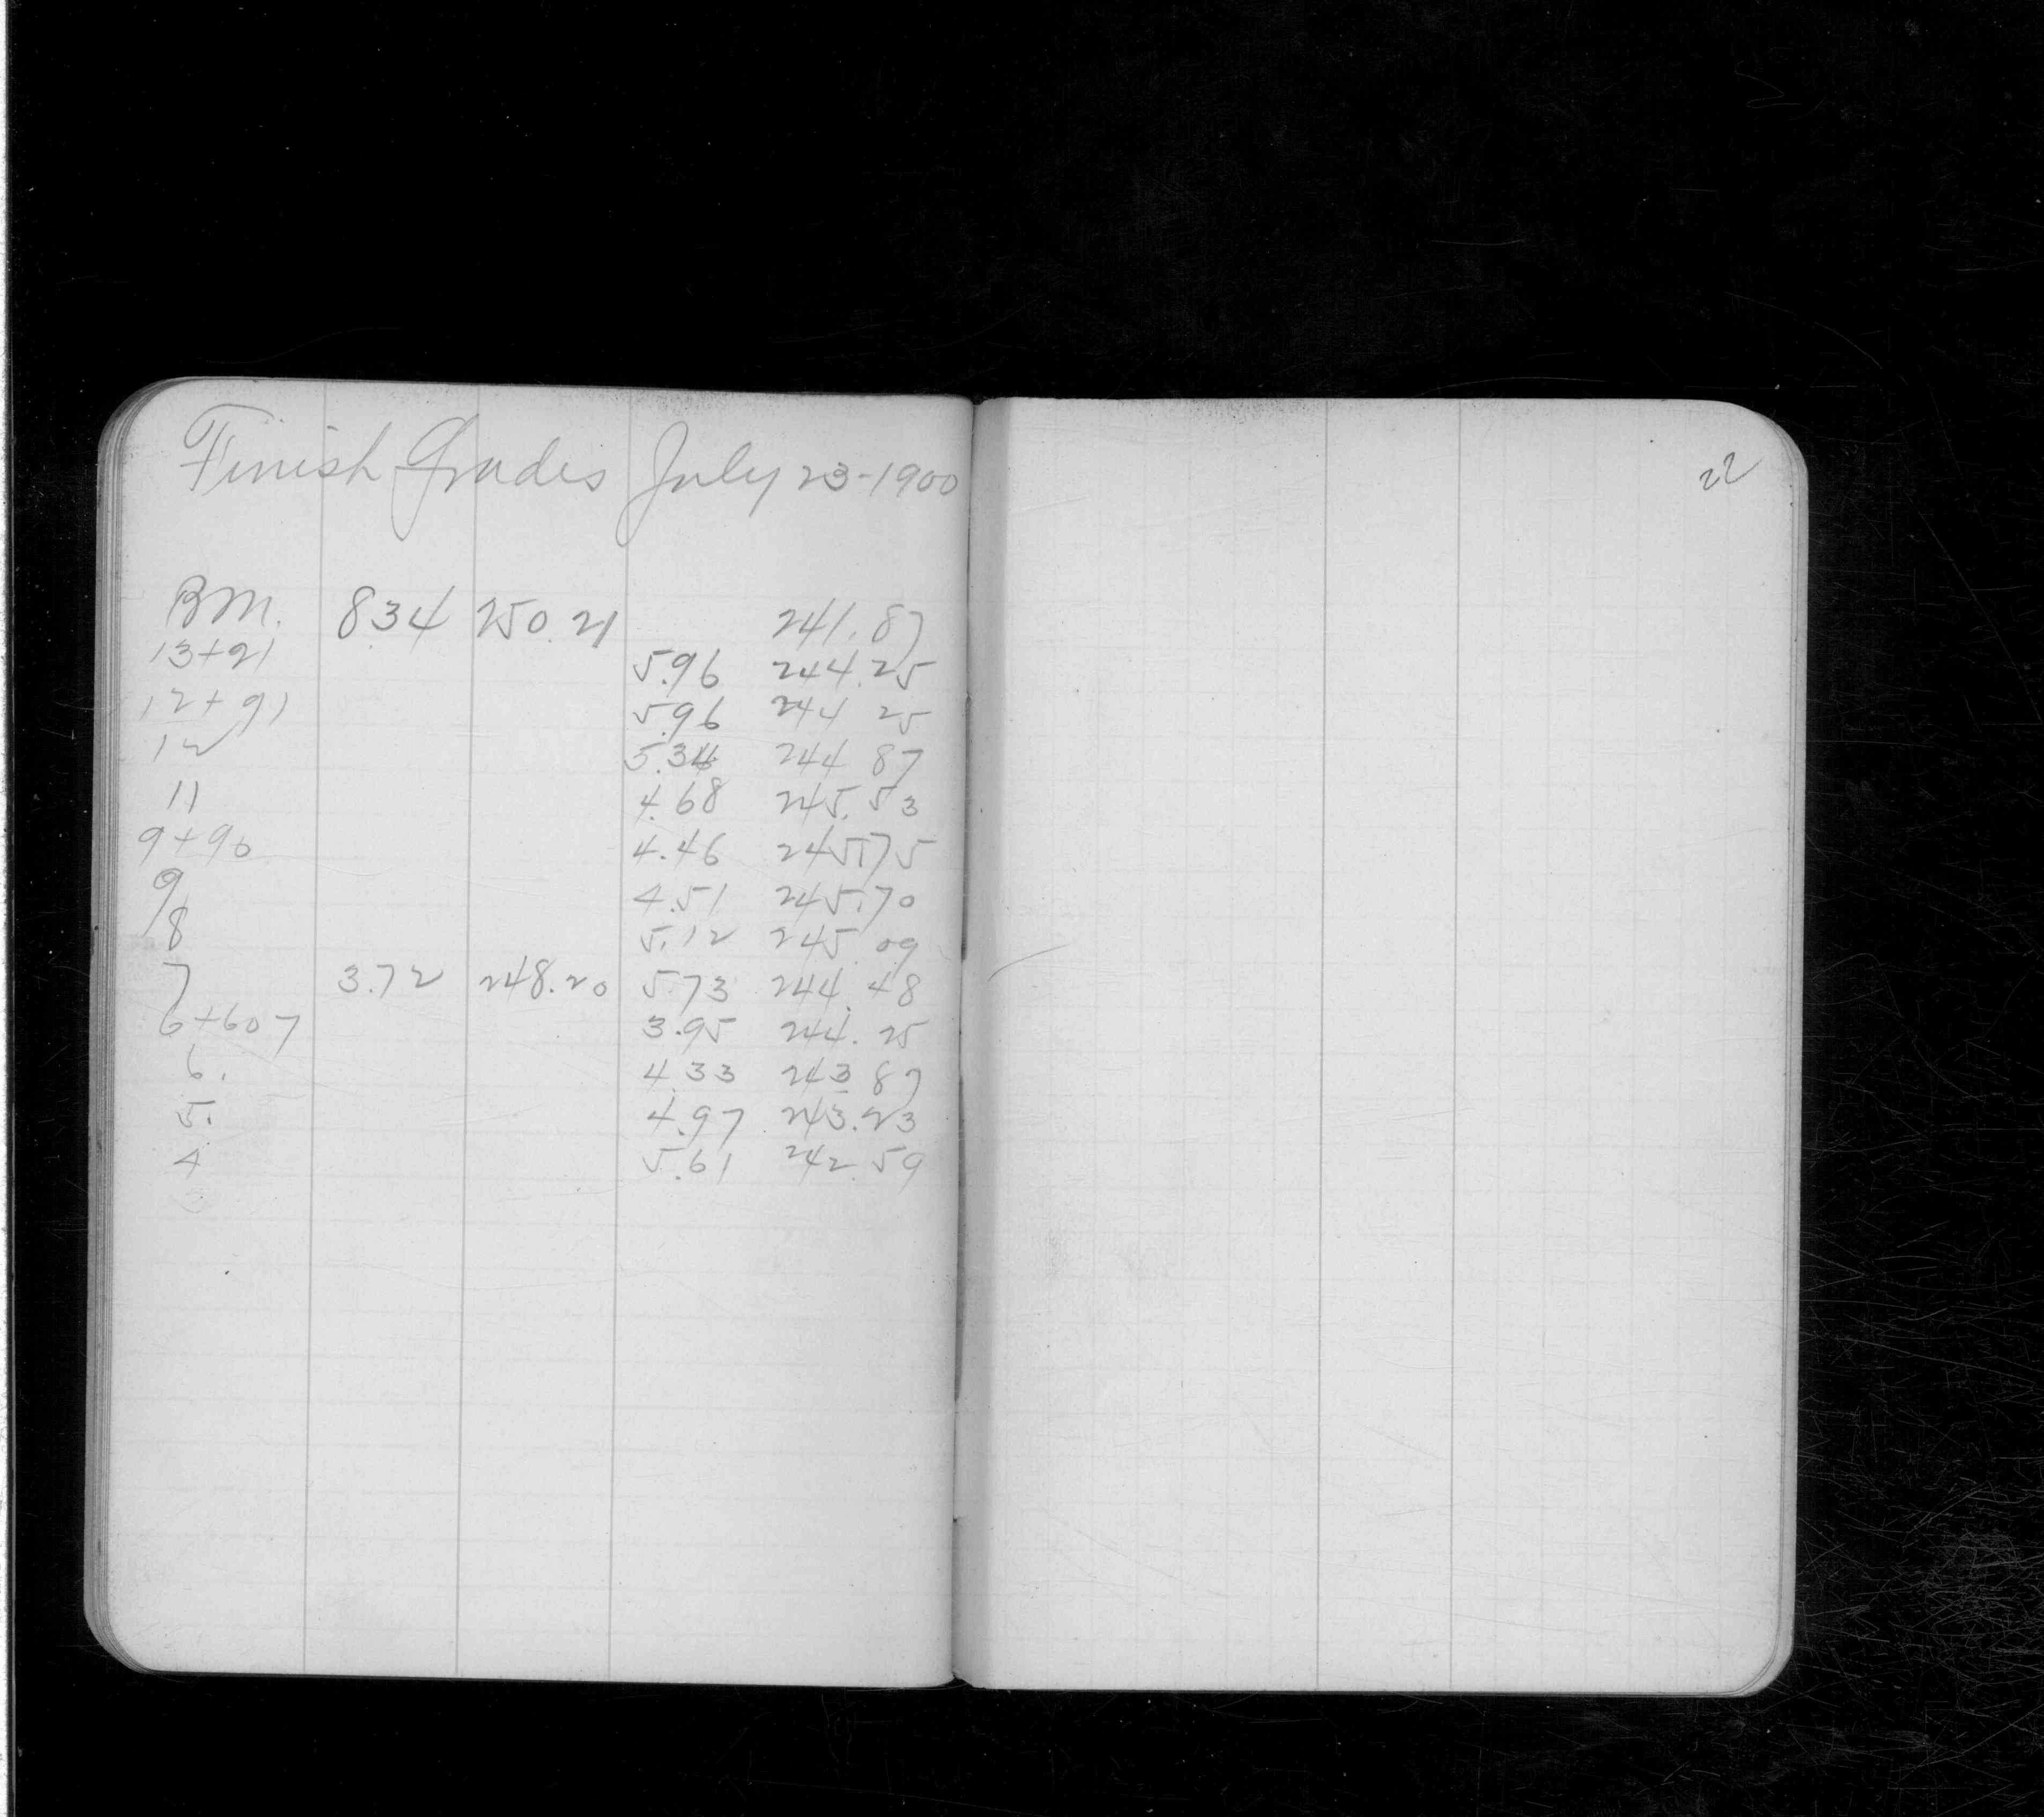 Finish Grades July 23-1900
22
BM. 8.34 250.21 241.87
13+21 5.96 244.25
12+91 5.96 244 25
12 5.34 244 87
11 4.68 245.53
9+90 4.46 245.75
9 4.51 245.70
8 5.12 245.09
7 3.72 248.20 5.73 244.48
6+607 3.95 244.25
6. 4.33 243 87
5. 4.97 243.23
4 5.61 242.59